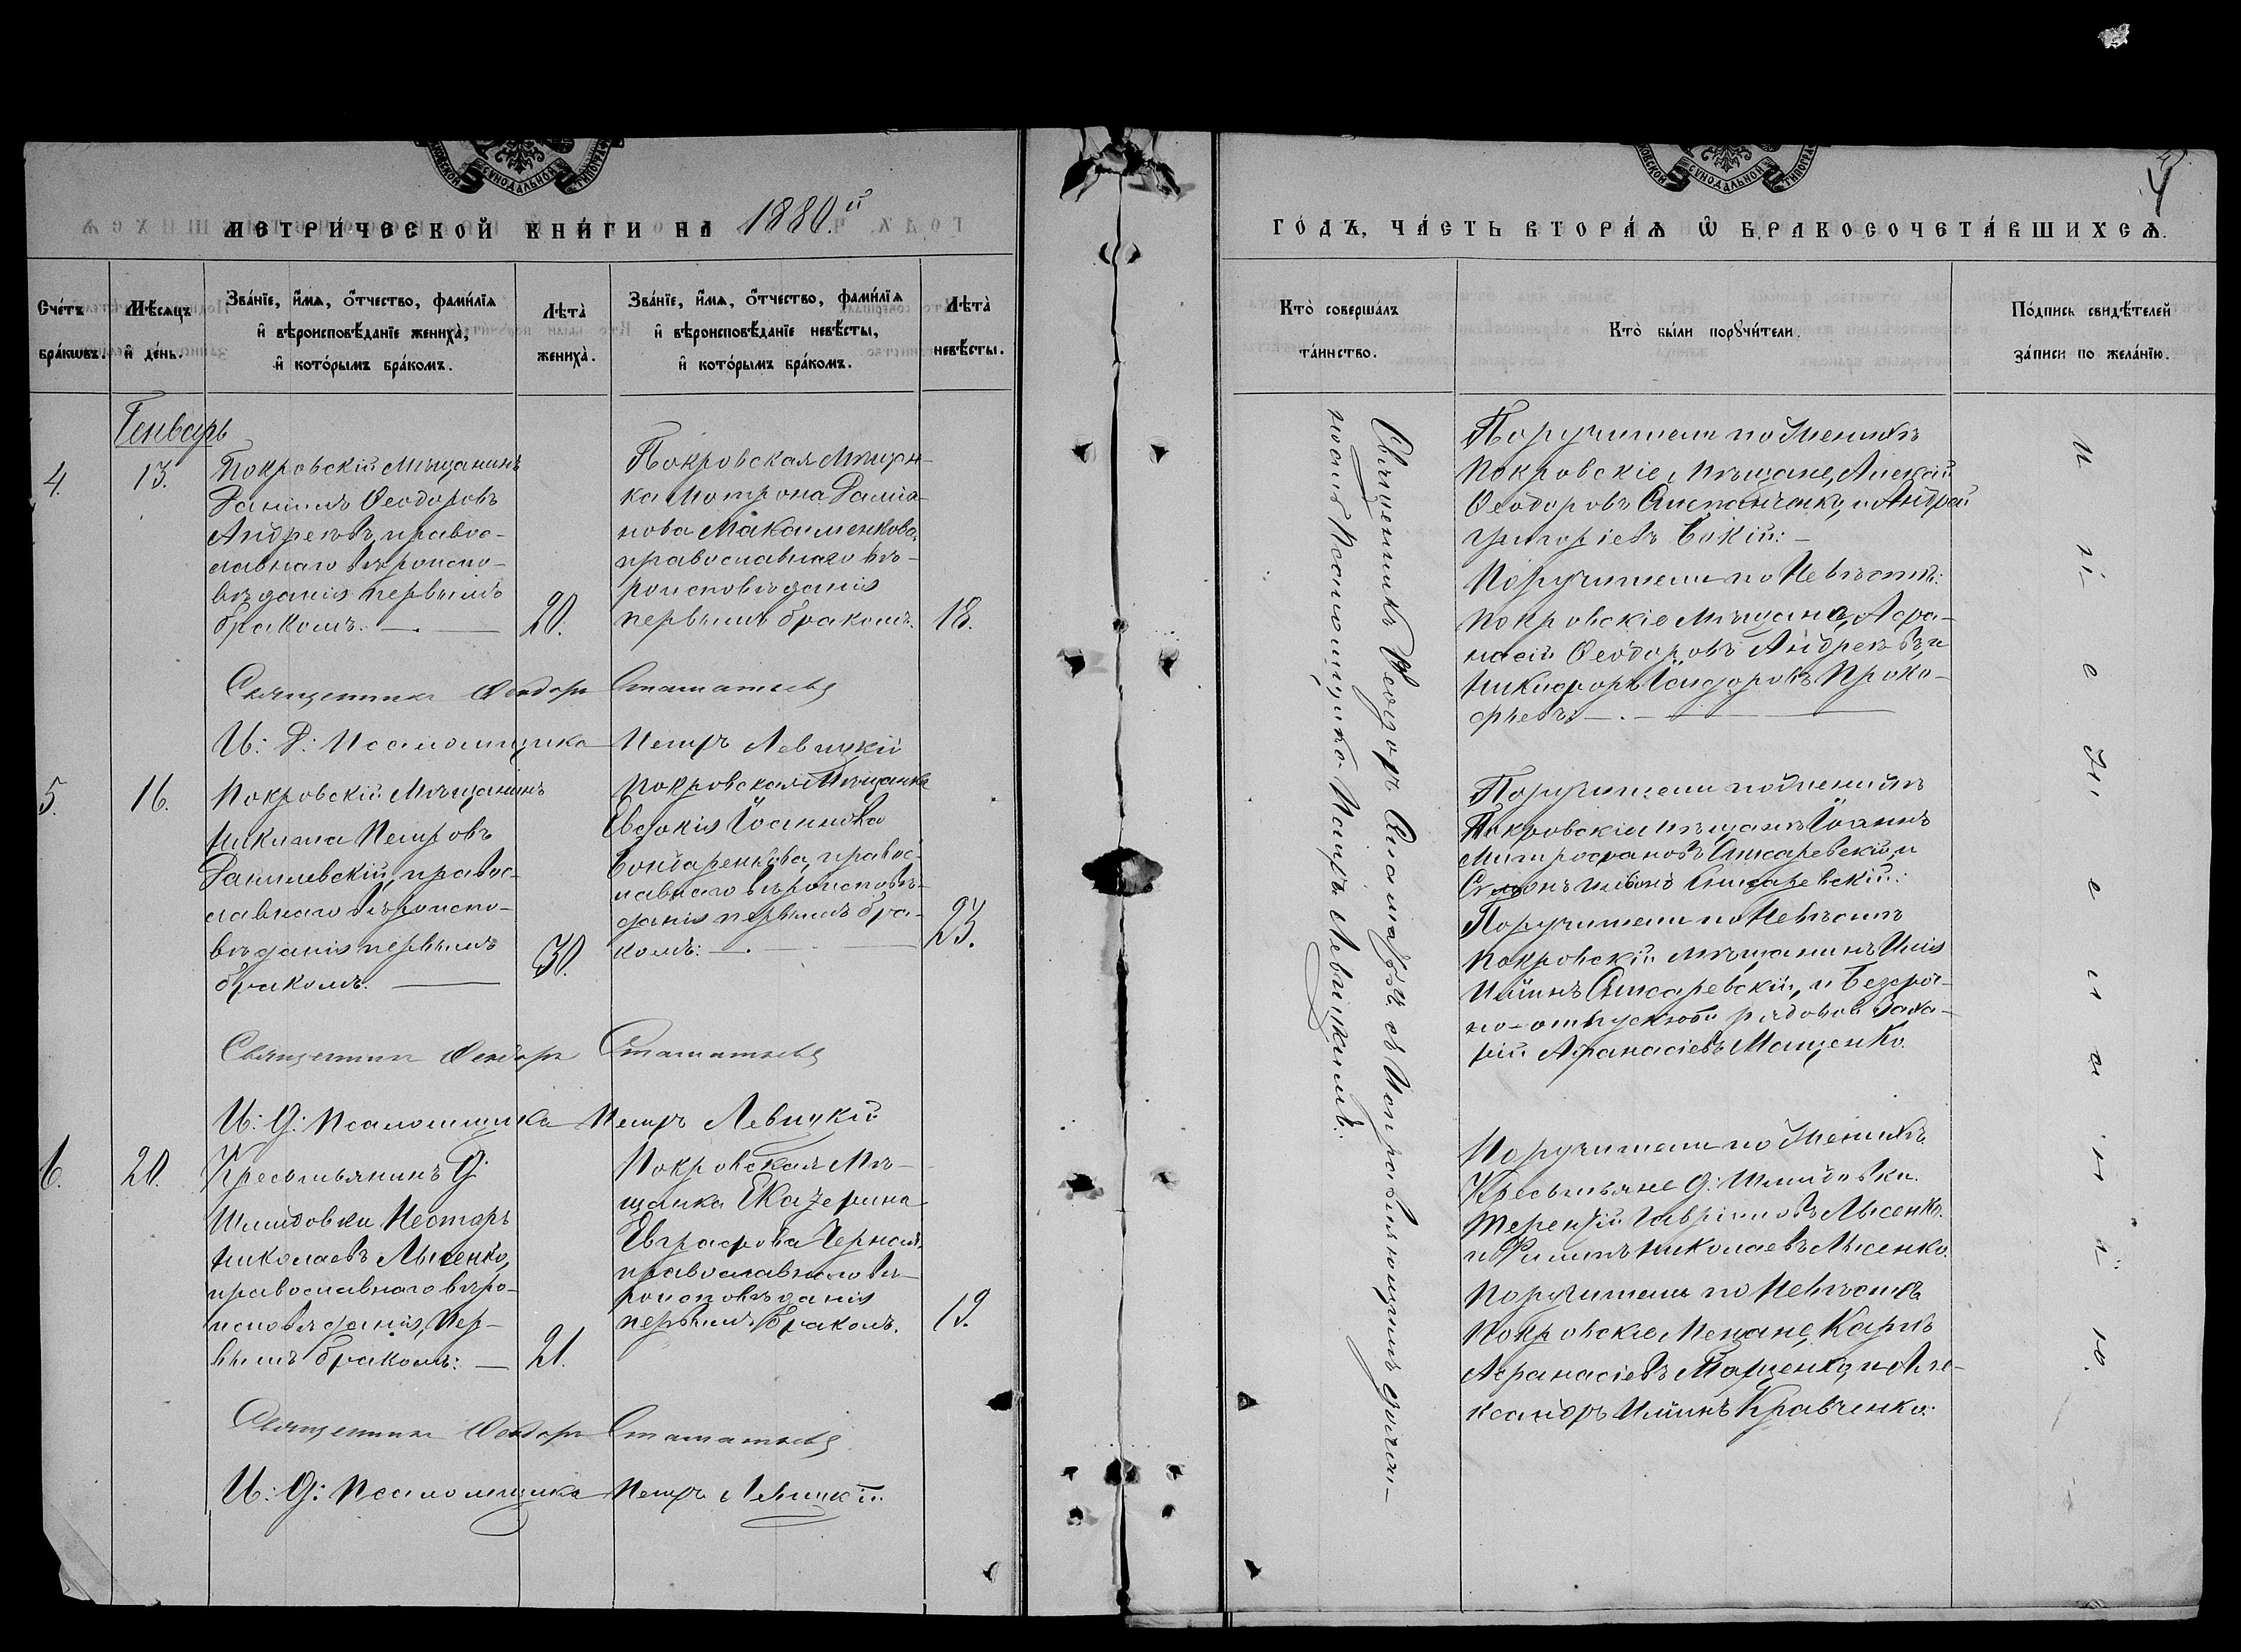 МЕТРИ́ЧЕСКОЙ КНИ́ГИ НА 1880.й
Сче́тъ бра́кѡвъ.
Мѣ́сяцъ и де́нь.
Зва́нїе, и́мѧ, о́тчество, фами́лїѧ
и вѣроисповѣ́данїе жениха̀,
и кото́рымъ бра́комъ.
Лѣта̀
жениха̀.
Зва́нїе, и́мѧ, о́тчество, фами́лїѧ
и вѣроисповѣ́данїе невѣ́сты,
и кото́рымъ бра́комъ.
Лѣта̀
невѣ́сты.
Генварь
4.
13.
Покровскій Мѣщанинъ
Даніилъ Ѳеодоровъ
Андреевъ, правос-
лавнаго вѣроиспо-
вѣданія первымъ
бракомъ. —
20.
Покровская Мѣщан-
ка Мотрона Даміа-
нова Макаименкова,
православнаго вѣ-
роисповѣданія
первымъ бракомъ.
18.
Священникъ Ѳеодоръ Стаматьевъ
И: Д: Псаломщика Петръ Левицкій
5.
16.
Покровскій Мѣщанинъ
Никита Петровъ
Данилевскій, правос-
лавнаго вѣроиспо-
вѣданія первымъ
бракомъ. —
30.
Покровская Мѣщанка
Евдокія Іоаннова
Бондаренкова, правос-
лавнаго вѣроисповѣ-
данія первымъ бра-
комъ: —
23.
Священникъ Ѳеодоръ Стаматьевъ
И: Д: Псаломщика Петръ Левицкій
6.
20.
Крестьянинъ С:
Шмидовки Несторъ
Николаевъ Лысенко,
православнаго вѣро-
исповѣданія, Пер-
вымъ бракомъ: —
21.
Покровская Мѣ-
щанка Екатерина
Евграфова Черная,
православнаго вѣ-
роисповѣданія
первымъ бракомъ.
19.
Священникъ Ѳеодоръ Стаматьевъ
И: Д: Псаломщика Петръ Левицкій
4
ГО́ДЪ, ЧА́СТЬ ВТОРА́Ѧ Ѡ БРАКОСОЧЕТА́ВШИХСѦ.
Кто̀ соверша́лъ
та́инство.
Кто̀ бы́ли порꙋчи́тели.
По́дпись свидѣ́телей
за́писи по жела́нїю.
Священникъ Ѳеодоръ Стаматьевъ съ Исправляющимъ должн-
ность Псаломщика Петръ Левицкимъ.
Поручители по Женихѣ
Покровскіе, Мѣщане, Алексѣй
Ѳеодоровъ и Андрей
Григоріевъ Бокій: —
Поручители по Невѣстѣ:
Покровскіе Мѣщане, Аѳа-
насій Ѳеодоровъ Андреевъ, и
Никифоръ Ісидоровъ Проко-
фьевъ: —
Поручители по Женихѣ
Покровскіе мѣщане Іоаннъ
Митрофановъ Слисаревскій, и
Слисаревскій:
Поручители по Невѣстѣ
Покровскій мѣщанинъ Илія
Иліинъ Слисаревскій, и Безсроч-
но-отпускной рядовой Заха-
рій Аѳанасіевъ Мащенко.
Поручители по Женихѣ
Крестьяне С: Шмидовки.
Терентій Гавріиловъ Лысенко.
и Филипъ Николаевъ Лысенко.
Поручители по Невѣстѣ
Покровскіе Мещане, Карпъ
Аѳанасіевъ Мащенко, и Але-
ксандръ Иліинъ Кравченко: